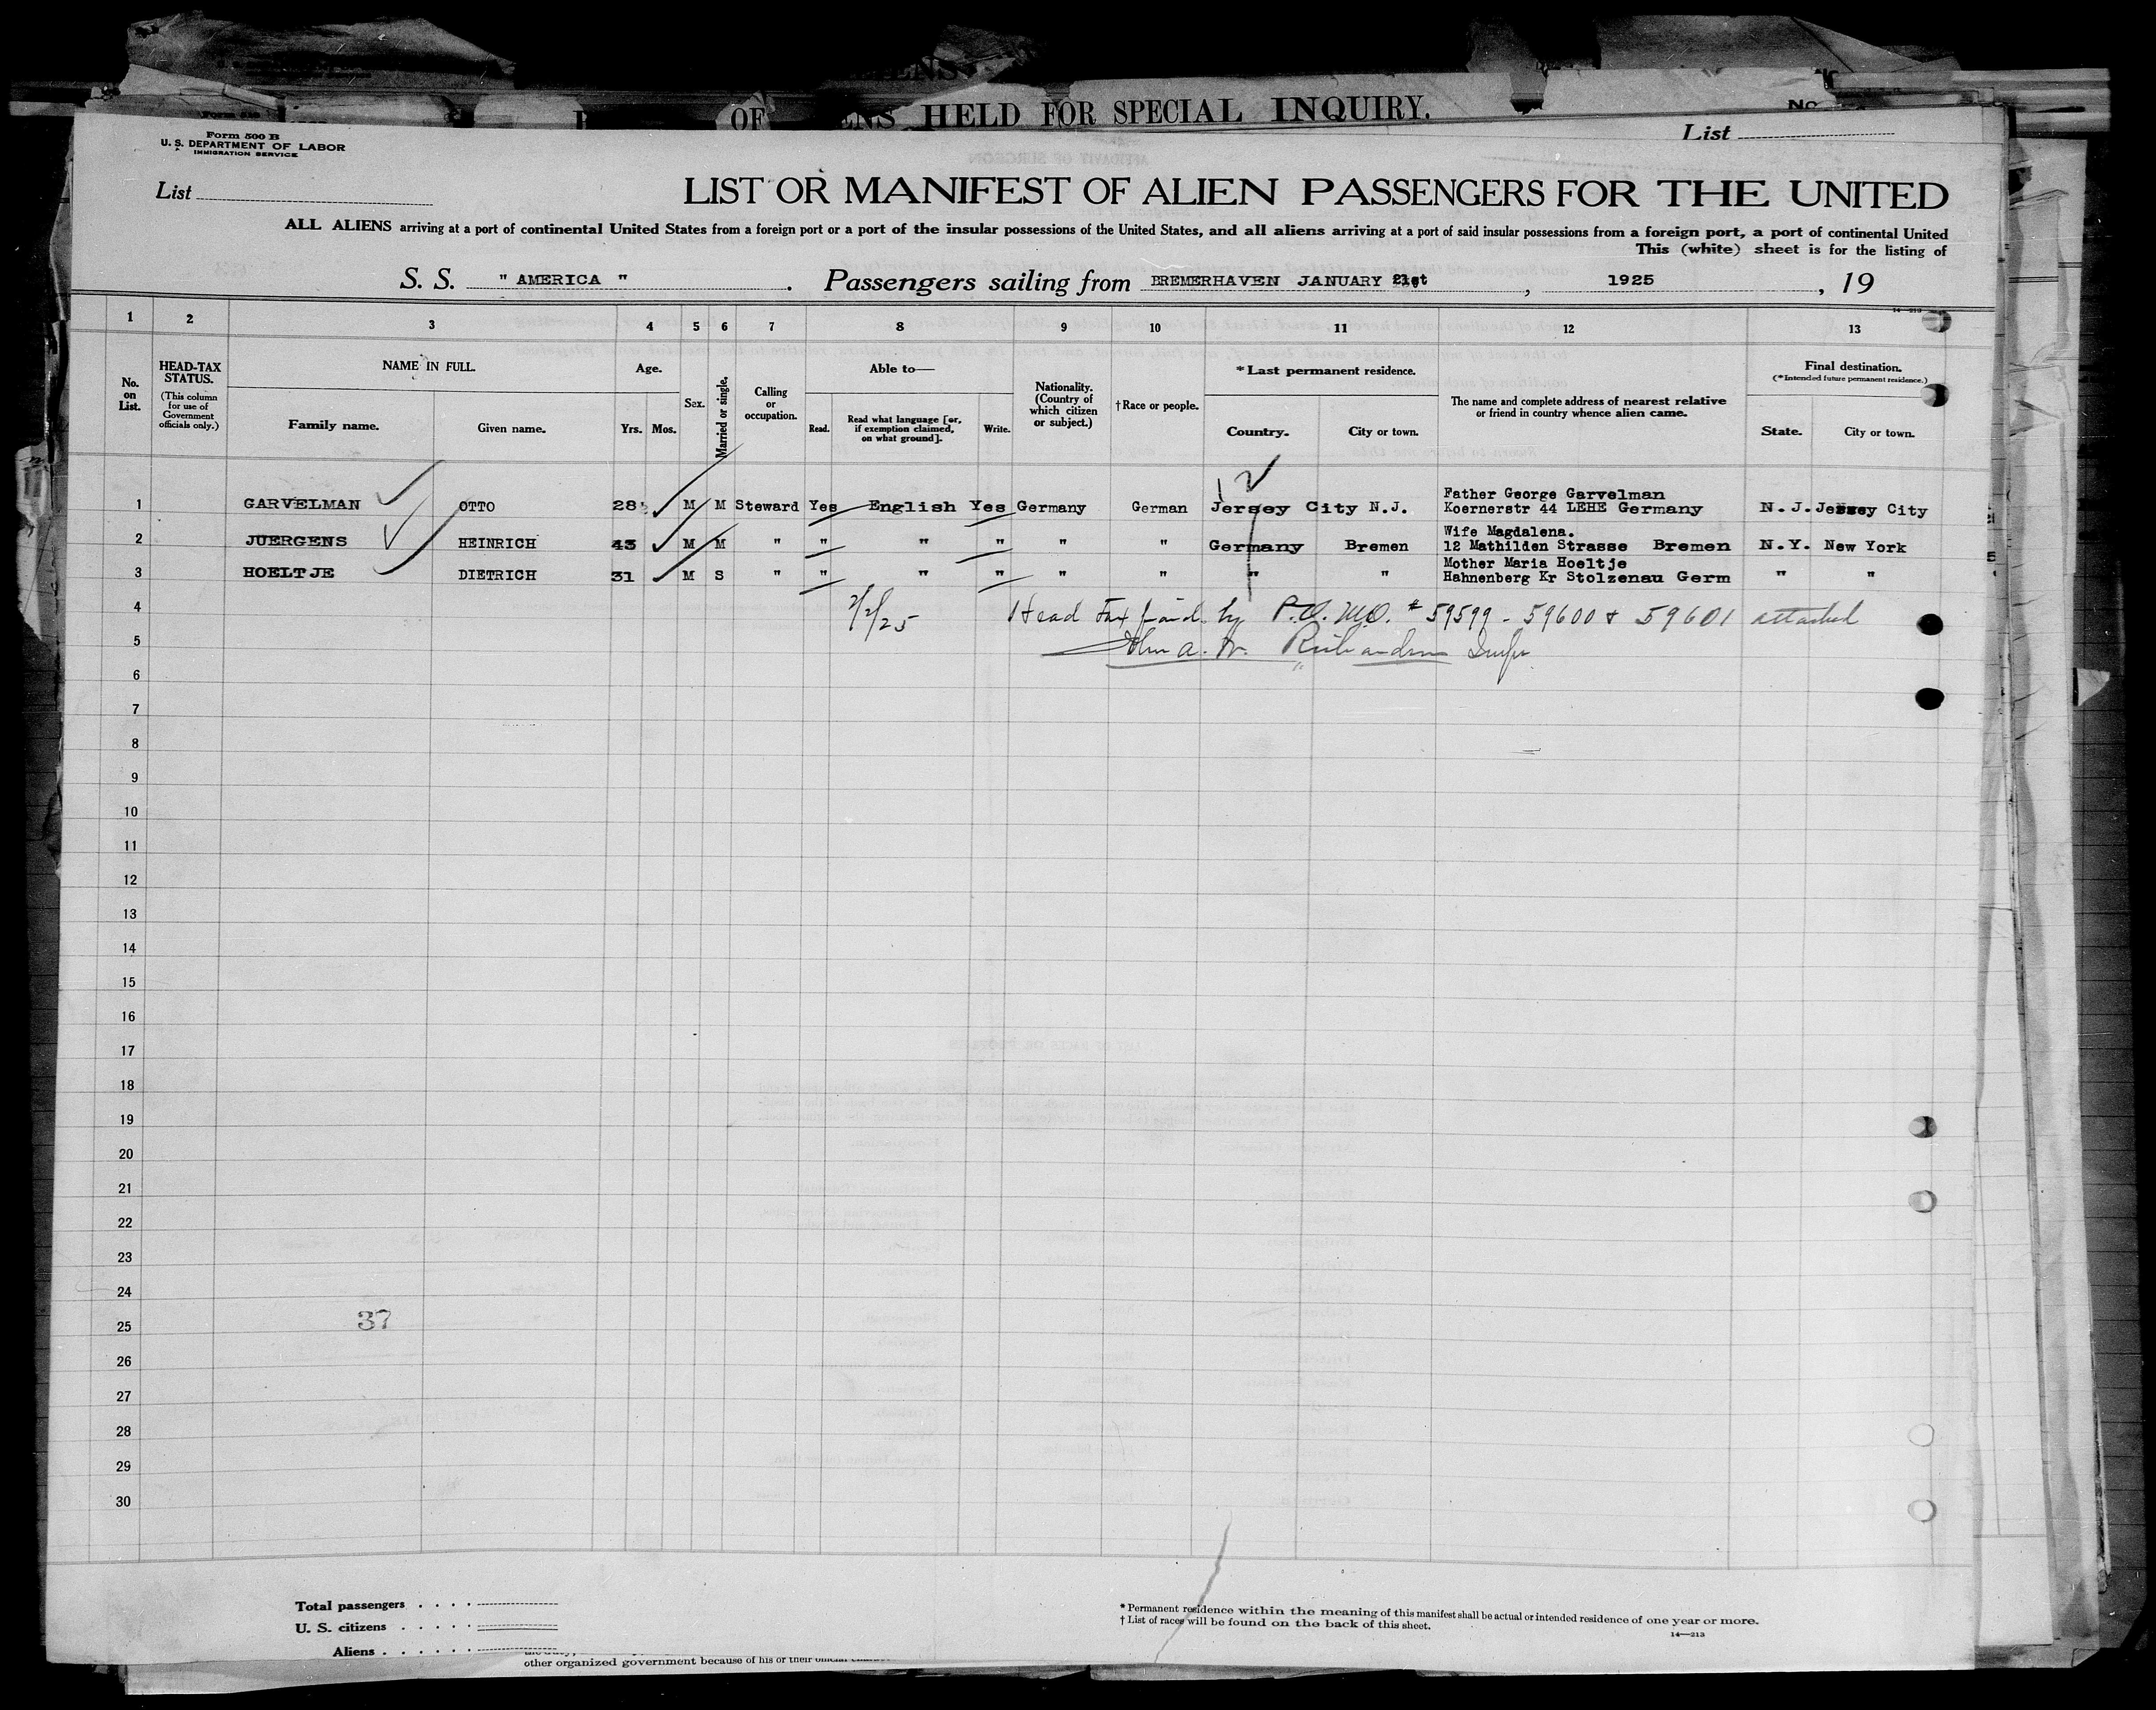 OF ENS HELD FOR SPECIAL INQUIRY.
No.
List
Form 500 B
U. S. DEPARTMENT OF LABOR
IMMIGRATION SERVICE
List
LIST OR MANIFEST OF ALIEN PASSENGERS FOR THE UNITED
ALL ALIENS arriving at a port of continental United States from a foreign port or a port of the insular possessions of the United States, and all aliens arriving at a port of said insular possessions from a foreign port, a port of continental United
This (white) sheet is for the listing of
S. S. " AMERICA " . Passengers sailing from BREMERHAVEN JANUARY 21st , 1925 , 19
1 2 3 4 5 6 7 8 9 10 11 12 13
No. on List.
HEAD-TAX STATUS.
(This column for use of Government officials only.)
NAME IN FULL.
Family name. Given name.
Age.
Yrs. Mos.
Sex.
Married or single.
Calling or occupation.
Able to—
Read. Read what language [or, if exemption claimed, on what ground]. Write.
Nationality. (Country of which citizen or subject.)
† Race or people.
* Last permanent residence.
Country. City or town.
The name and complete address of nearest relative or friend in country whence alien came.
Final destination.
(* Intended future permanent residence.)
State. City or town.
12
1 GARVELMAN OTTO 28 M M Steward Yes English Yes Germany German Jersey City N.J. Father George Garvelman
Koernerstr 44 LEHE Germany N.J. Jersey City
2 JUERGENS HEINRICH 43 M M " " " " " " Germany Bremen Wife Magdalena.
12 Mathilden Strasse Bremen N.Y. New York
3 HOELTJE DIETRICH 31 M S " " " " " " " " Mother Maria Hoeltje
Hahnenberg Kr Stolzenau Germ " "
4 2/2/25 Head Tax paid by P.O. M.O. # 59599 - 59600 & 59601 attached
5 Richardson
6
7
8
9
10
11
12
13
14
15
16
17
18
19
20
21
22
23
24
25 37
26
27
28
29
30
Total passengers
U. S. citizens
Aliens
* Permanent residence within the meaning of this manifest shall be actual or intended residence of one year or more.
† List of races will be found on the back of this sheet.
14—213
other organized government because of his or their official